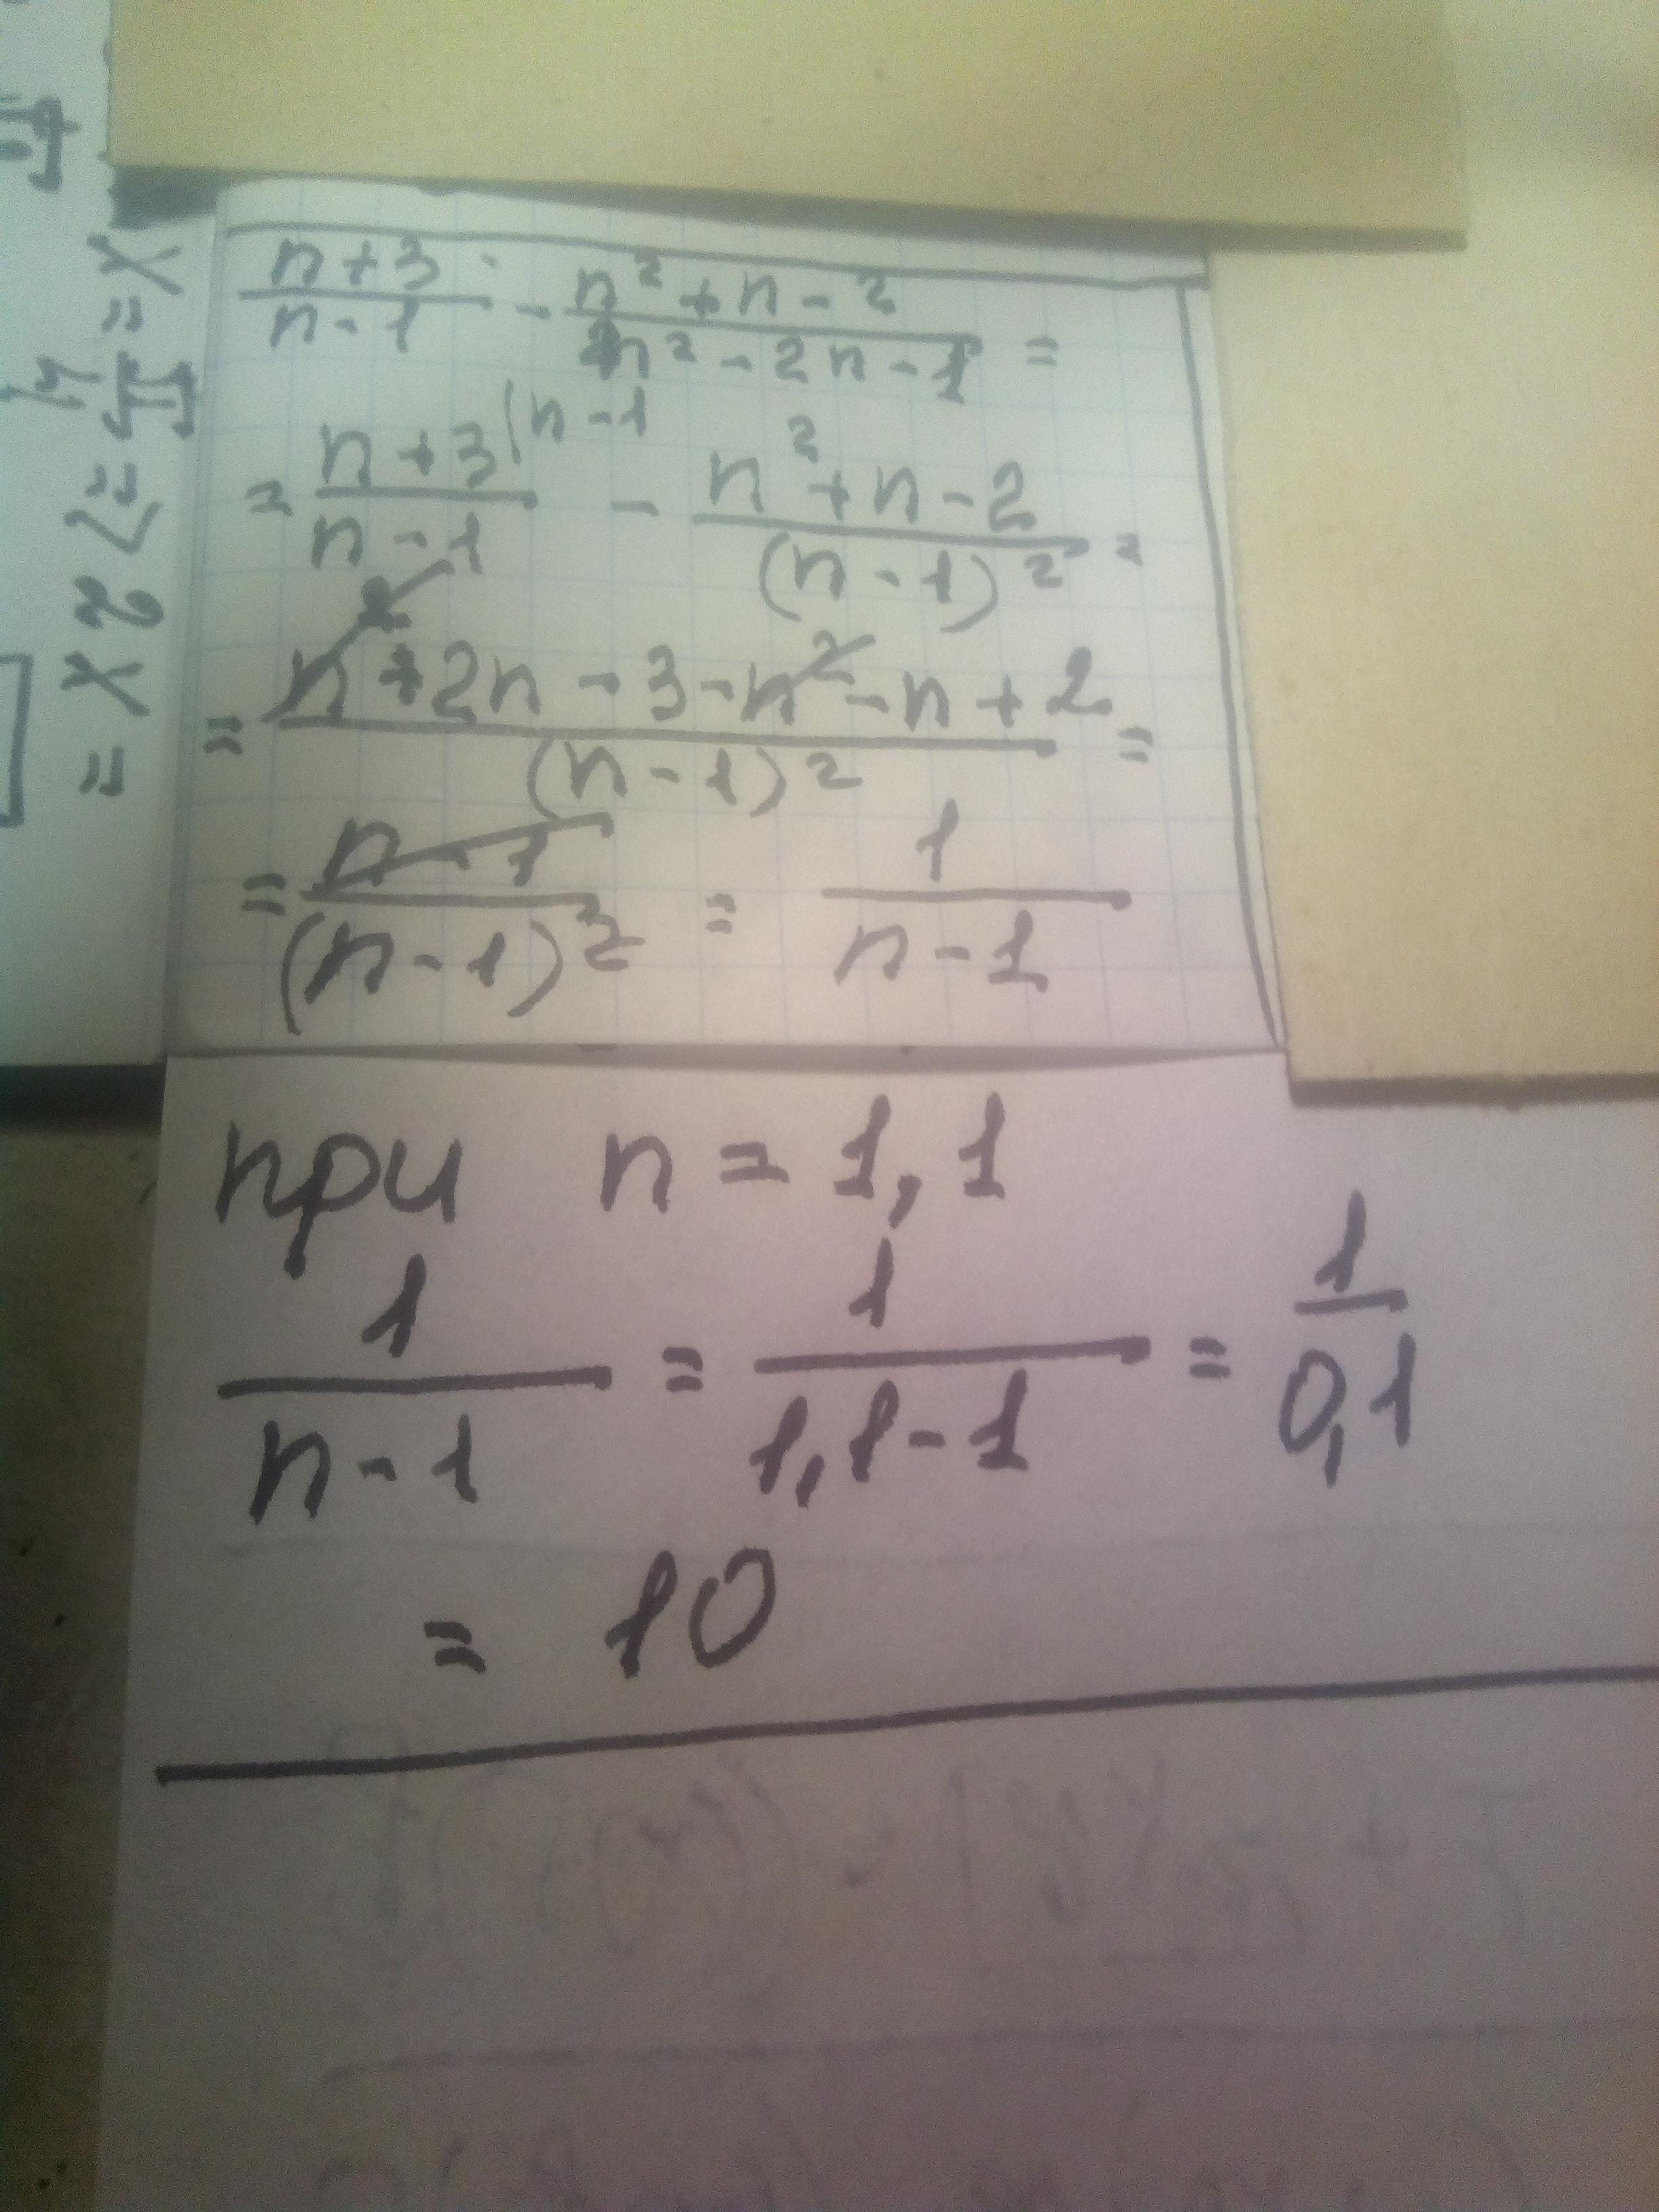 (n+3)/(n-1) - (n²+n-2)/(n²-2n-1) =
= (n+3)/(n-1) |n-1 - (n²+n-2)/(n-1)² =
= (n²+2n-3-n²-n+2)/(n-1)² =
= (n-1)/(n-1)² = 1/(n-1)
при n = 1,1
1/(n-1) = 1/(1,1-1) = 1/0,1
= 10